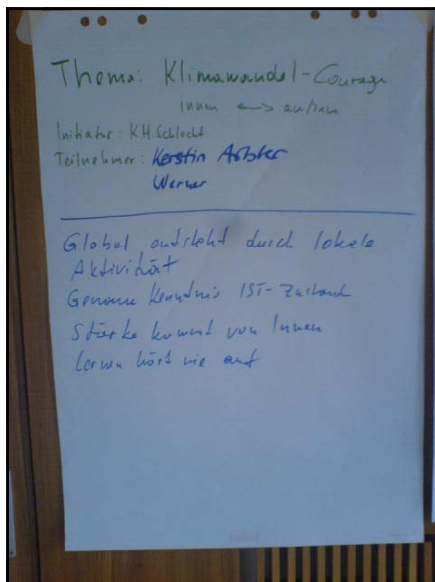 Thema: Klimawandel-Courage
innen und außen
Initiator: K.H. Schlecht
Teilnehmer: Kerstin
Werner
Global entsteht durch lokale
Aktivität
Genaue Kenntnis IST-Zustand
Stärke kommt von Innen
Lernen hört nie auf